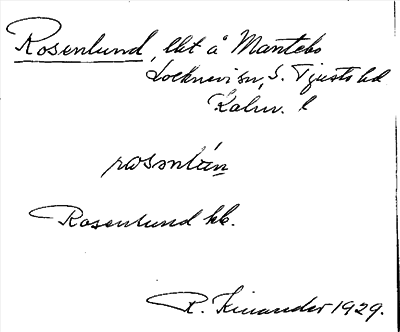 Rosenlund, lht å Mantebo
Locknevi sn, S. Tjusts hd
Kalm. l
rosənlún
Rosenlund hk.
R. Kinander 1929.